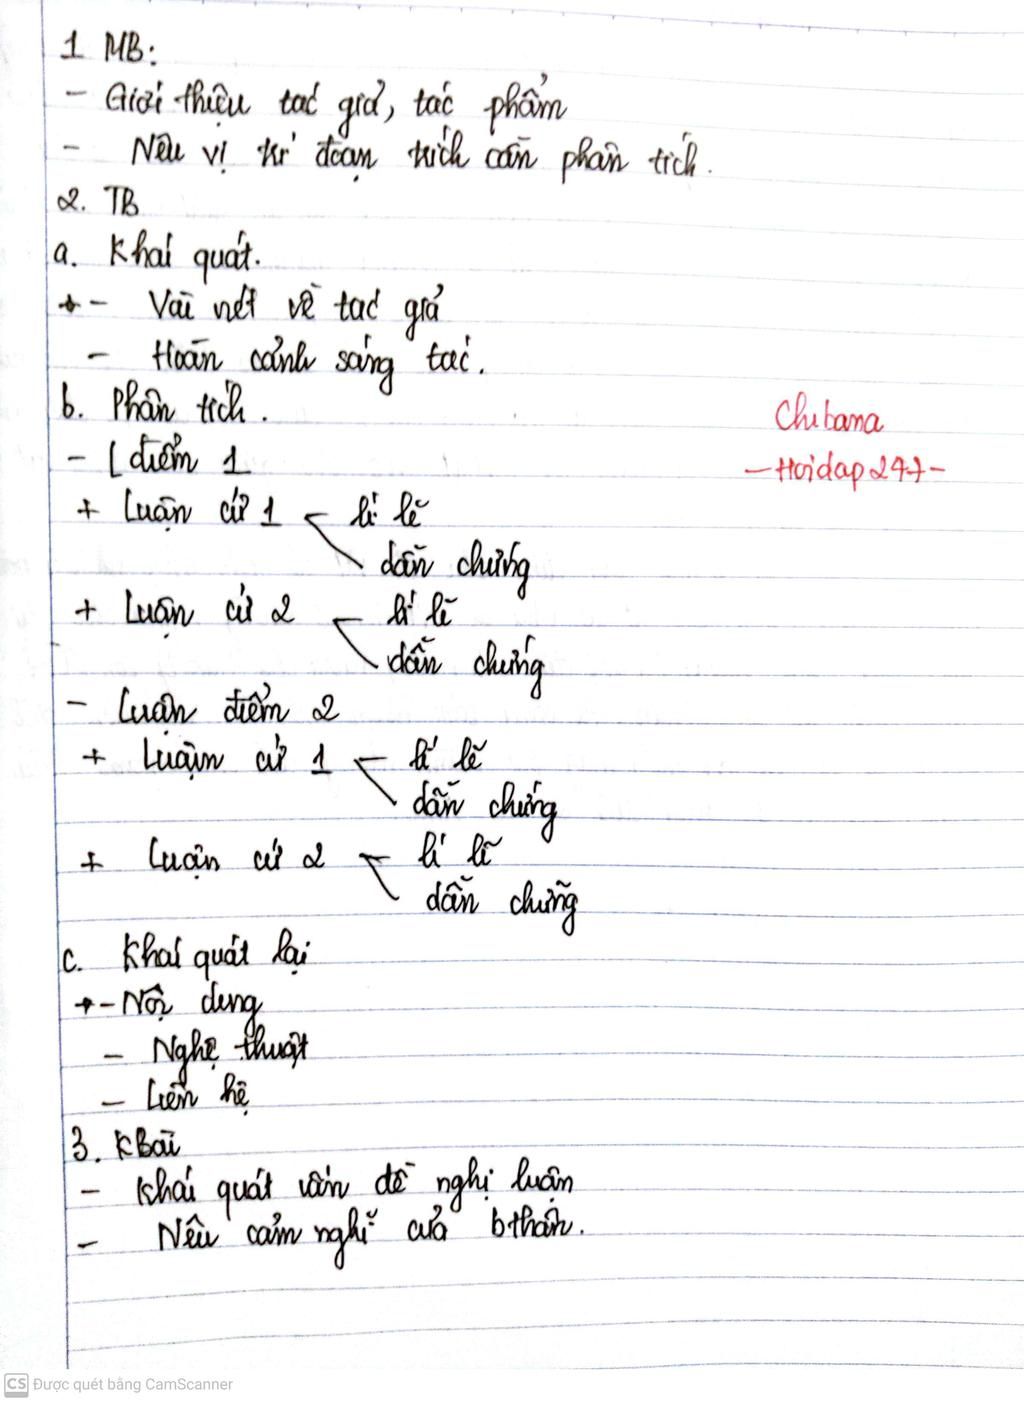 1 MB:
- Giới thiệu tác giả, tác phẩm
- Nêu vị trí đoạn trích cần phân tích.
2. TB
a. Khái quát.
+ - Vài nét về tác giả
- Hoàn cảnh sáng tác.
b. Phân tích.
Chibana
- L điểm 1
- Hoidap247 -
+ Luận cứ 1 lí lẽ
dẫn chứng
+ Luận cứ 2 lí lẽ
dẫn chứng
- Luận điểm 2
+ Luận cứ 1 lí lẽ
dẫn chứng
+ Luận cứ 2 lí lẽ
dẫn chứng
c. Khái quát lại
+ - Nội dung
- Nghệ thuật
- Liên hệ
3. KBài
- Khái quát vấn đề nghị luận
- Nêu cảm nghĩ của bthân.
CS Được quét bằng CamScanner